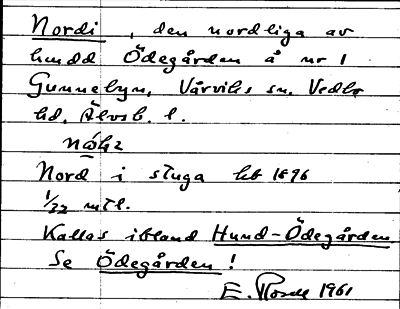 Nordi, den nordliga av
hudd Ödegården å nr 1
Gunnebyn, Vårviks sn. Vedbo
hd. Älvsb. l.
Nord i stuga hb 1896
1/32 mtl.
Kallas ibland Hund-Ödegården
Se Ödegården!
E. Rosell 1961